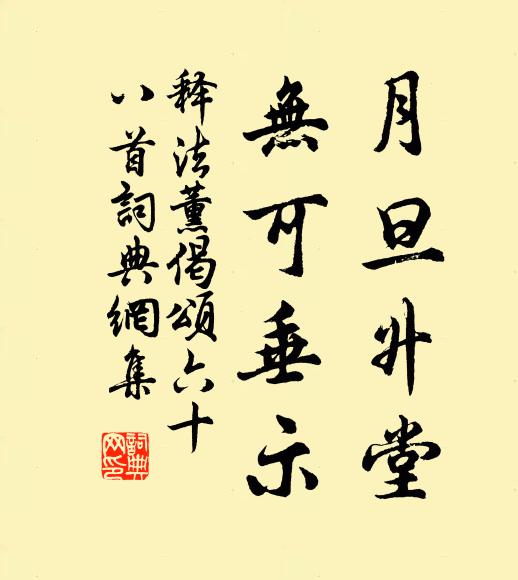 月旦升堂
無可垂示
释法薰偈頌六十
八首詞典網集
詞典
网印